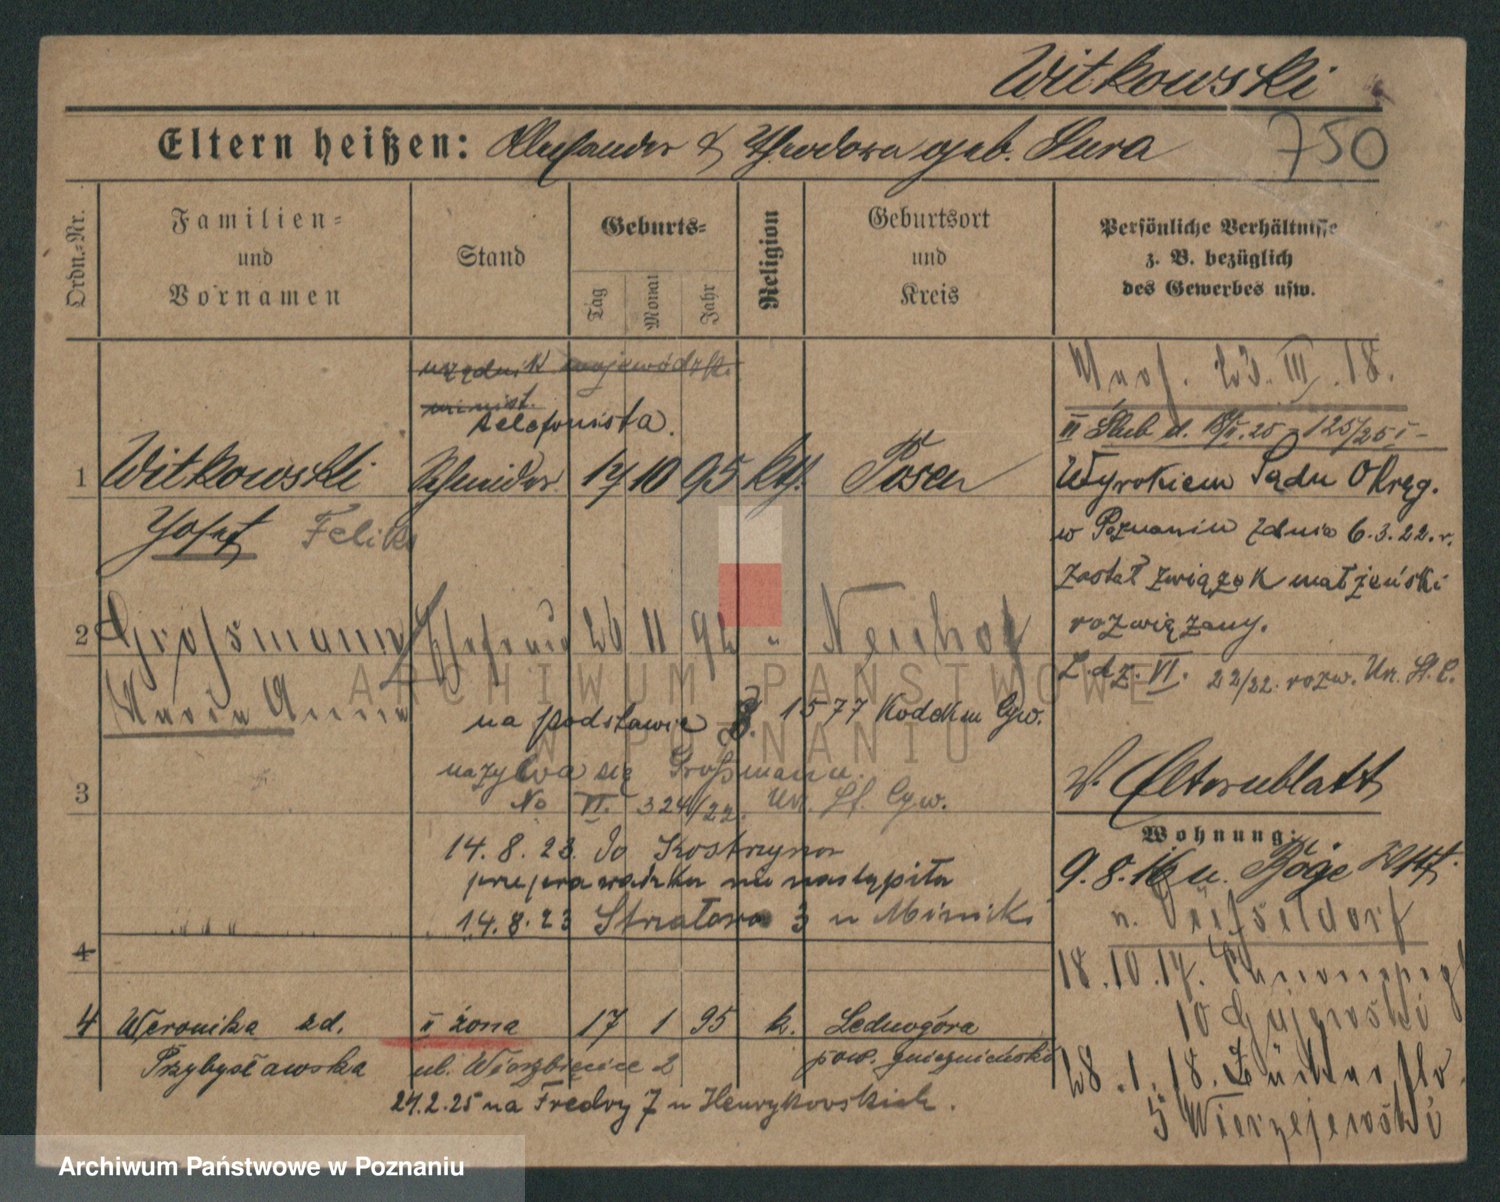 Witkowski
750
Eltern heißen: Alexander & Theodora geb. Sura
Ordn.-Nr.
Familien- und Vornamen
Stand
Geburts-
Tag
Monat
Jahr
Religion
Geburtsort und Kreis
Persönliche Verhältnisse z. B. bezüglich des Gewerbes usw.
urzędnik wojewódzki
minist.
telefonista.
1 Witkowski Schneider 14 10 95 kth. Posen
Josef Feliks
2 Großmann Ehefrau 26 11 92 " Neuhof
Maria Anna
na podstawie §. 1577 Kodeksu Cyw.
nazywa się Großmann.
No VI. 324/22. Urz. St. Cyw.
3
14.8.23. do Kostrzyna
przeprowadzka nie nastąpiła
14.8.23 Strzałowa 3 u Mirnicki
4
4 Weronika zd. II żona 17 1 95 k. Lednogóra
Przybysławska ul. Wierzbięcice 2 pow. gnieznieński
24.2.25 na Fredry 7 u Henrykowskich.
23. III. 18.
II Ślub d. II.25 - 125/25 I -
Wyrokiem Sądu Okręg.
w Poznaniu z dnia 6.3.22. r.
został związek małżeński
rozwiązany.
L. dz. VI. 22/22. rozw. Urz. St. C.
Elternblatt
Wohnung:
9.8.16 u.
n. Düsseldorf
18.10.17.
10 Gujewski
28.1.18.
5 Wierzejewski
ARCHIWUM PAŃSTWOWE
W POZNANIU
Archiwum Państwowe w Poznaniu